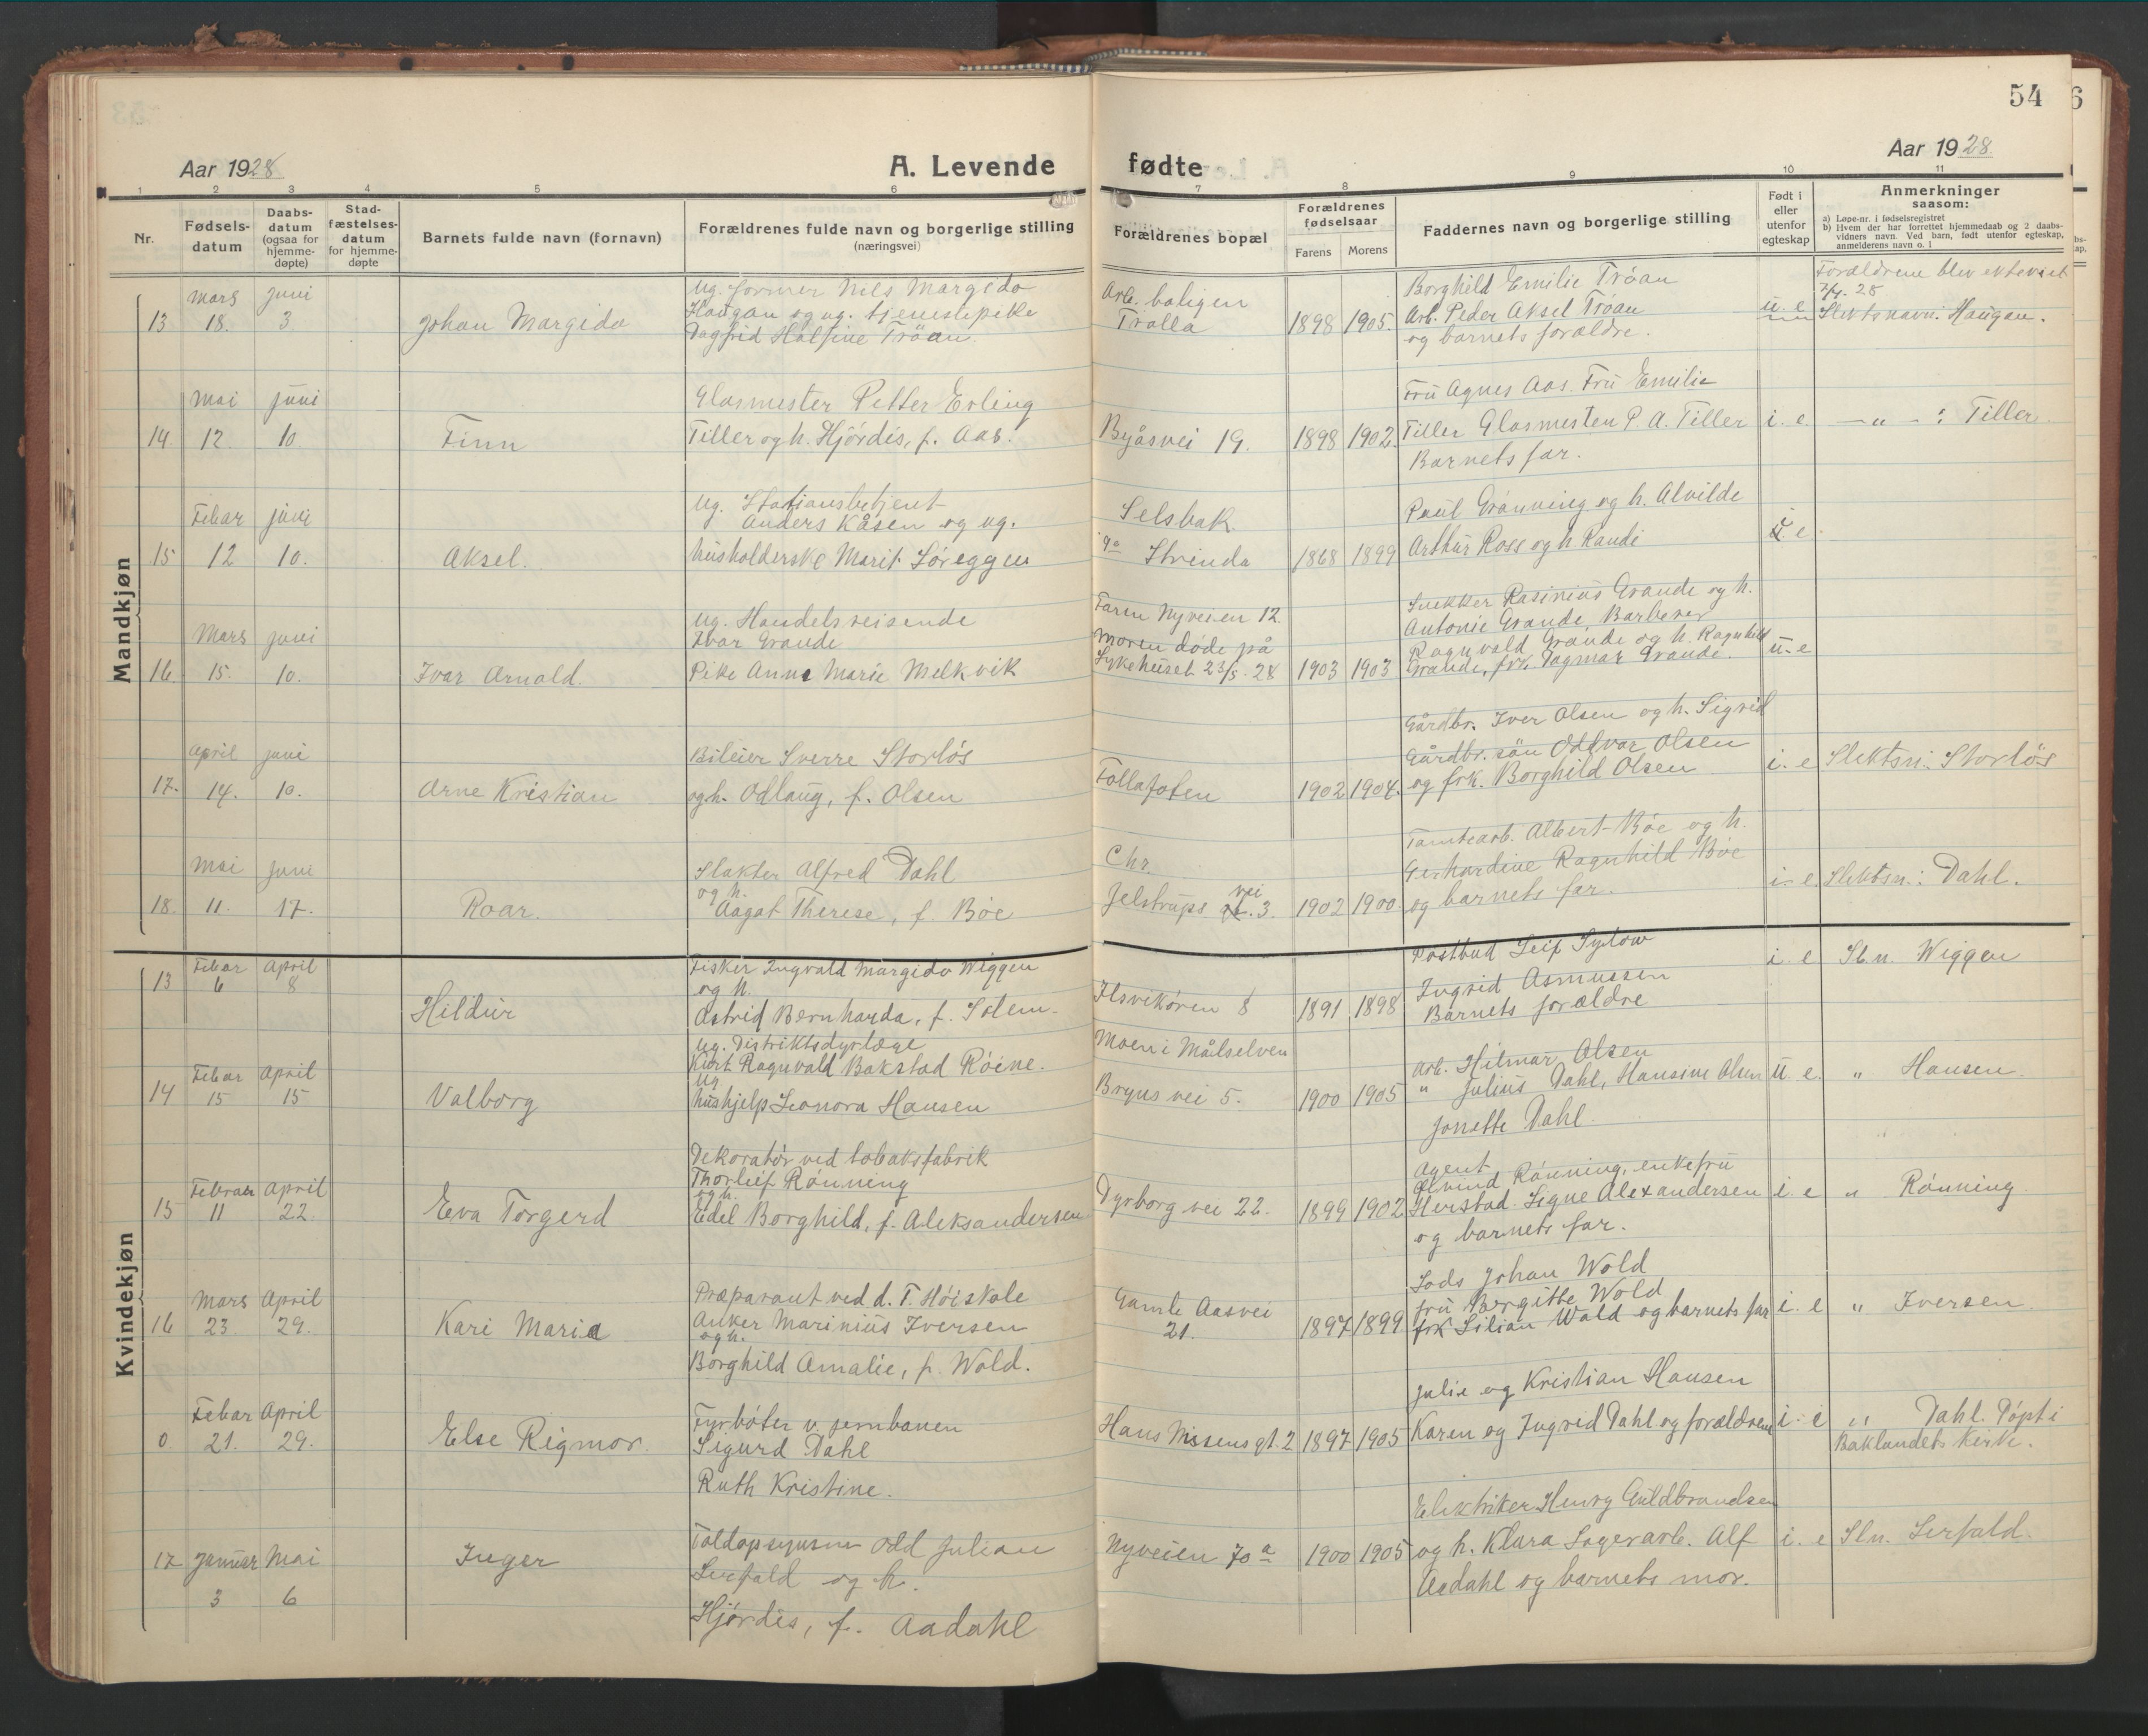 54
Aar 1928
A. Levende
fødte
Aar 1928
1 2 3 4 5 6 7 8 9 10 11
Nr.
Fødsels-
datum
Daabs-
datum
(ogsaa for
hjemme-
døpte)
Stad-
fæstelses-
datum
for hjemme-
døpte
Barnets fulde navn (fornavn)
Forældrenes fulde navn og borgerlige stilling
(næringsvei)
Forældrenes bopæl
Forældrenes
fødselsaar
Farens
Morens
Faddernes navn og borgerlige stilling
Født i
eller
utenfor
egteskap
Anmerkninger
saasom:
a) Løpe-nr. i fødselsregistret
b) Hvem der har forrettet hjemmedaab og 2 daabs-
vidners navn. Ved barn, født utenfor egteskap,
anmelderens navn o. l
Mandkjøn
13
Mars
18.
juni
3
Johan Margido
ug. former Nils Margido
Haugan og ug. tjenestepike
Dagfrid Halfine Trøan.
Arb. boligen
Trolla
1898
1905.
Borghild Emilie Trøan
Arb. Peder Aksel Trøan
og barnets forældre.
u. e
Forældrene blev ektevet
28
Slektsnavn. Haugan.
14.
Mai
12.
juni
10
Finn
Glasmester Petter Erling
Tiller og h. Hjördis, f. Aas.
Byåsvei 19.
1898
1902.
Fru Agnes Aas. Fru Emilie
Tiller Glasmesten P. A. Tiller
Barnets far.
i. e.
— „ — : Tiller.
15
Febar
12
juni
10.
Aksel.
ug. Stationsbetjent
Anders Kåsen og ug.
husholderske Marit Søreggen
Selsbak.
Strinda
1868
1899
Paul Grønning og h. Alvilde
Arthur Ross og h Randi
e.
16.
Mars
15.
juni
10.
Ivar Arnold.
ug. Handelsreisende
Ivar Grande
Pike Anna Marie Melkvik
Faren Nyveien 12.
Moren døde på
Sykehuset 23/5. 28
1903
1903
Snekker Rasinius Grande og h.
Antonie Grande, Barberer
Ragnvald Grande og h. Ragnhild
Grande, frk. Dagmar Grande.
u. e
17.
April
14.
juni
10.
Arne Kristian
Bileier Sverre Storløs
og h. Odlaug, f. Olsen
Follafoten
1902
1904.
Gårdbr. Iver Olsen og h. Sigrid
Gårdbr. søn Oddvar Olsen
og frk. Borghild Olsen
i. e
Slektsn: Storløs
18.
Mai
11.
Juni
17.
Roar.
Slakter Alfred Dahl
og h.
Aagot Therese, f. Bøe
Chr.
vei
Jelstrups gt. 3.
1902
1900.
Tomtearb. Albert Bøe og h.
Gerhardine Ragnhild Bøe
og barnets far.
i. e.
Slektsn.: Dahl.
Kvindekjøn
13
Febar
6
April
8
Hildur
Fisker Ingvald Margido Wiggen
og h.
Astrid Bernharda, f. Solem.
Ilsvikøren 8
1891
1898
Postbud Leif Sylow
Ingrid Asmussen
Barnets forældre
i. e
Sl.n. Wiggen
14
Febar
15
April
15
Valborg
ug. Distriktsdyrlæge
Kurt Ragnvald Bakstad Røine.
ug
hushjelp Leonora Hansen
Moen i Målselven
Bryns vei 5.
1900
1905
Arb. Hilmar Olsen
„ Julius Dahl, Hansine Olsen
Jonette Dahl.
u. e.
„ Hansen.
15
Februar
11
April
22
Eva Torgerd
Dekoratør ved tobaksfabrik
Thorleif Rønning
og h.
Edel Borghild, f. Aleksandersen
Dyrborg vei 22.
1899
1902
Agent
Øivind Rønning, enkefru
Herstad. Signe Alexandersen
og barnets far.
i. e
„ Rønning
16
Mars
23
April
29.
Kari Maria
Præparant ved d. T. Høiskole
Anker Marinius Iversen
og h.
Borghild Amalie, f. Wold.
Gamle Aasvei
21.
1897
1899
Lods Johan Wold
fru Bergitte Wold
frk Lilian Wold og barnets far
i. e
„ Iversen.
0
Febar
21.
April
29.
Else Rigmor.
Fyrbøter v. jernbanen
Sigurd Dahl
Ruth Kristine.
Hans Nissens gt. 2
1897
1905
Julie og Kristian Hansen
Karen og Ingrid Dahl og forældrene
i. e
„ Dahl. Døpt i
Baklandets Kirke.
17
Januar
3
Mai
6
Inger
Toldopsynsm Odd Julian
Lerfald og h.
Hjørdis, f. Aadahl
Nyveien 70 a
1900
1905
Elektriker Henry Guldbrandsen
og h. Klara Lagerarb. Alf
Aadahl og barnets mor.
i. e
Sln. Lerfald.